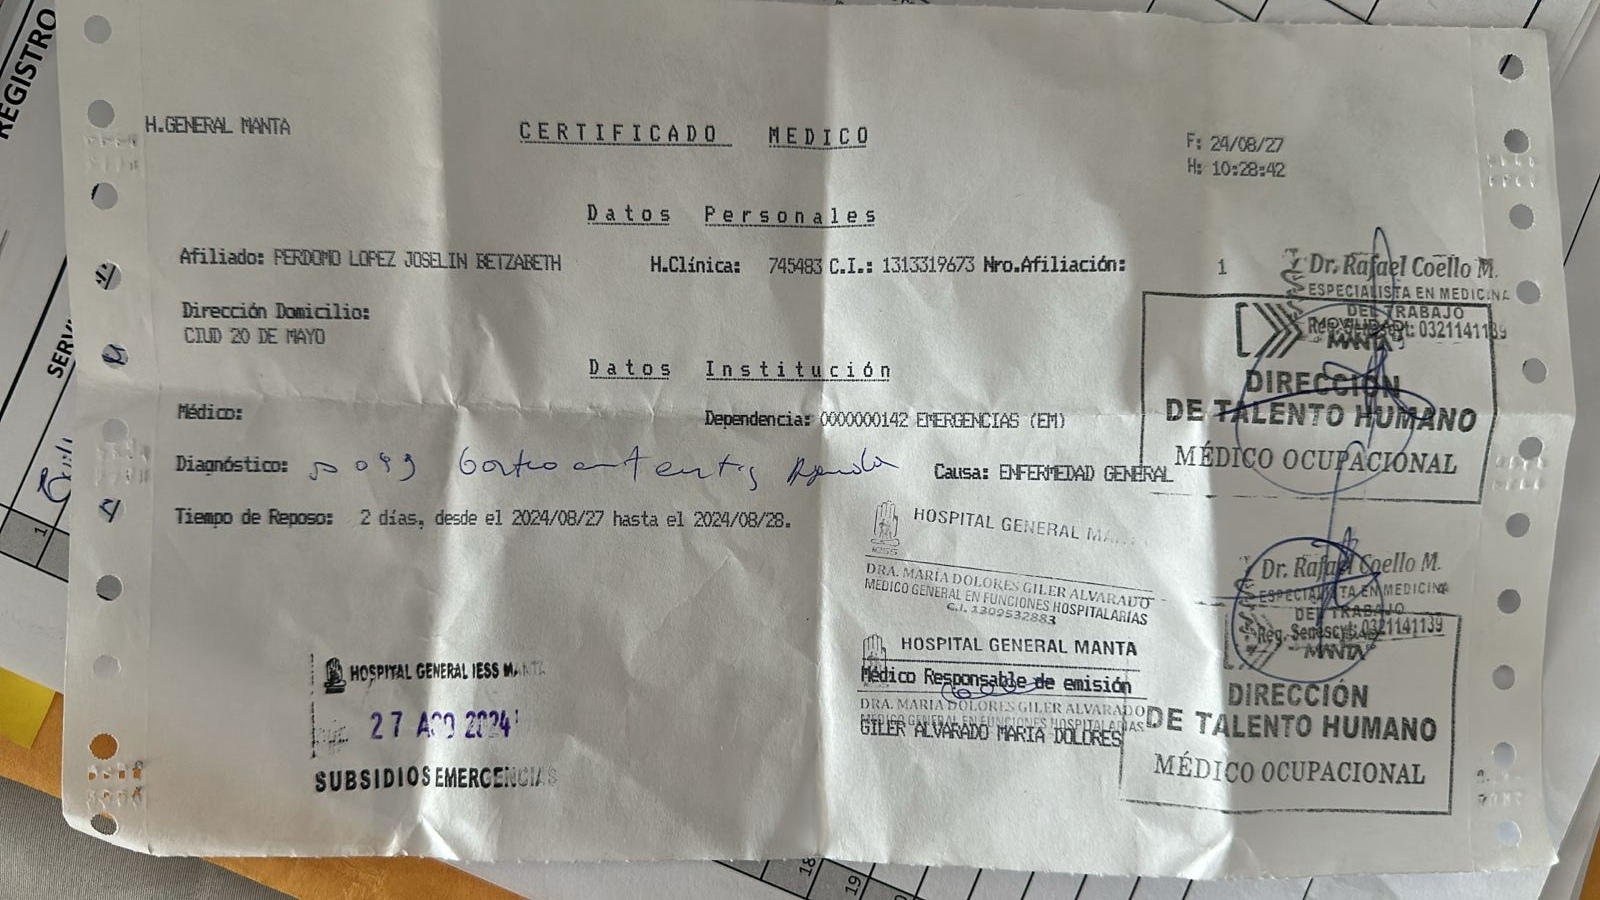 REGISTRO
H.GENERAL MANTA
CERTIFICADO MEDICO
F: 24/08/27
H: 10:28:42
Datos Personales
Afiliado: PERDOMO LOPEZ JOSELIN BETZABETH H.Clínica: 745483 C.I.: 1313319673 Nro.Afiliación: 1
Dirección Domicilio:
CIUD 20 DE MAYO
Datos Institución
Médico: Dependencia: 0000000142 EMERGENCIAS (EM)
Diagnóstico: Causa: ENFERMEDAD GENERAL
Tiempo de Reposo: 2 días, desde el 2024/08/27 hasta el 2024/08/28.
Dr. Rafael Coello M.
ESPECIALISTA EN MEDICINA
DEL TRABAJO
0321141139
MANTA
DIRECCIÓN
DE TALENTO HUMANO
MÉDICO OCUPACIONAL
HOSPITAL GENERAL MANTA
IESS
DRA. MARIA DOLORES GILER ALVARADO
MEDICO GENERAL EN FUNCIONES HOSPITALARIAS
C.I. 1309532883
HOSPITAL GENERAL MANTA
Médico Responsable de emisión
DRA. MARIA DOLORES GILER ALVARADO
MEDICO GENERAL EN FUNCIONES HOSPITALARIAS
GILER ALVARADO MARIA DOLORES
Dr. Rafael Coello M.
ESPECIALISTA EN MEDICINA
DEL TRABAJO
Reg. Senescyt: 0321141139
MANTA
DIRECCIÓN
DE TALENTO HUMANO
MÉDICO OCUPACIONAL
HOSPITAL GENERAL IESS MANTA
27 AGO 2024
SUBSIDIOS EMERGENCIAS
1
18
19